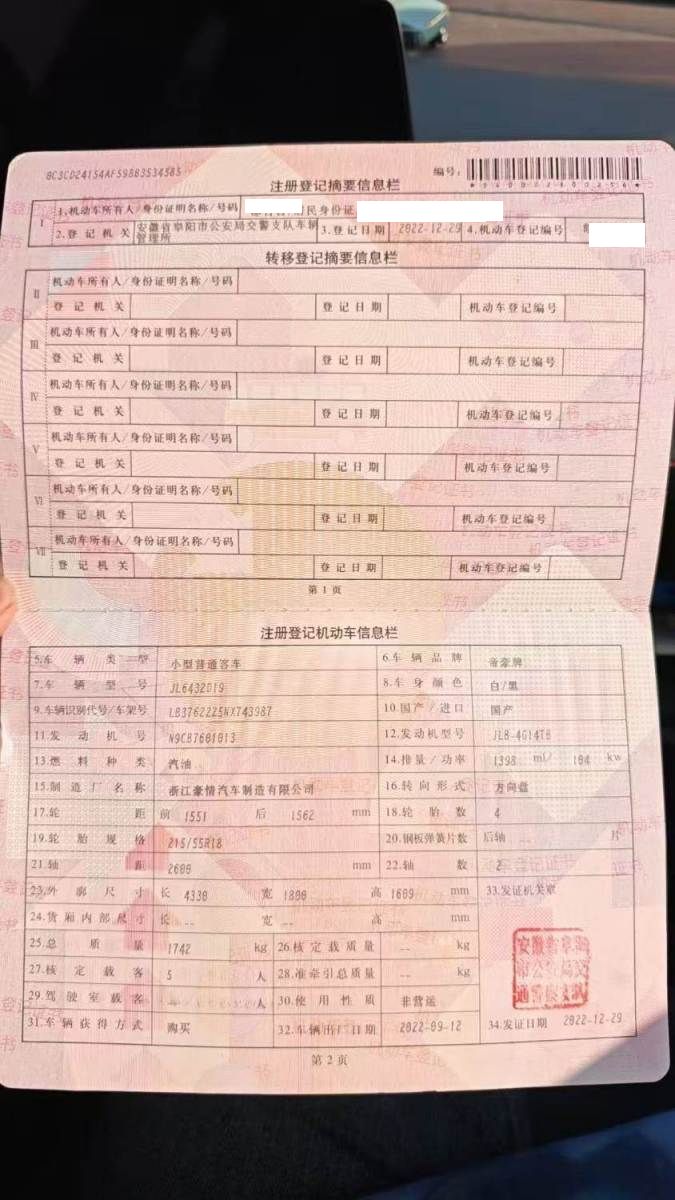 8C3CD24154AF598B3534585
编号:
注册登记摘要信息栏
I 1.机动车所有人/身份证明名称/号码 居民身份证
2.登记机关 安徽省阜阳市公安局交警支队车辆管理所 3.登记日期 2022-12-29 4.机动车登记编号
转移登记摘要信息栏
II 机动车所有人/身份证明名称/号码
登记机关 登记日期 机动车登记编号
III 机动车所有人/身份证明名称/号码
登记机关 登记日期 机动车登记编号
IV 机动车所有人/身份证明名称/号码
登记机关 登记日期 机动车登记编号
V 机动车所有人/身份证明名称/号码
登记机关 登记日期 机动车登记编号
VI 机动车所有人/身份证明名称/号码
登记机关 登记日期 机动车登记编号
VII 机动车所有人/身份证明名称/号码
登记机关 登记日期 机动车登记编号
第1页
注册登记机动车信息栏
5.车辆类型 小型普通客车 6.车辆品牌 帝豪牌
7.车辆型号 JL6432D19 8.车身颜色 白/黑
9.车辆识别代号/车架号 LB37622Z5NX743987 10.国产/进口 国产
11.发动机号 N9CB7601013 12.发动机型号 JLB-4G14TB
13.燃料种类 汽油 14.排量/功率 1398 ml/ 104 kw
15.制造厂名称 浙江豪情汽车制造有限公司 16.转向形式 方向盘
17.轮距 前 1551 后 1562 mm 18.轮胎数 4
19.轮胎规格 215/55R18 20.钢板弹簧片数 后轴 -- 片
21.轴距 2600 mm 22.轴数 2
23.外廓尺寸 长 4330 宽 1800 高 1609 mm 33.发证机关章
24.货厢内部尺寸 长 -- 宽 -- 高 -- mm
25.总质量 1742 kg 26.核定载质量 -- kg
27.核定载客 5 人 28.准牵引总质量 -- kg
29.驾驶室载客 -- 人 30.使用性质 非营运
31.车辆获得方式 购买 32.车辆出厂日期 2022-09-12 34.发证日期 2022-12-29
第2页